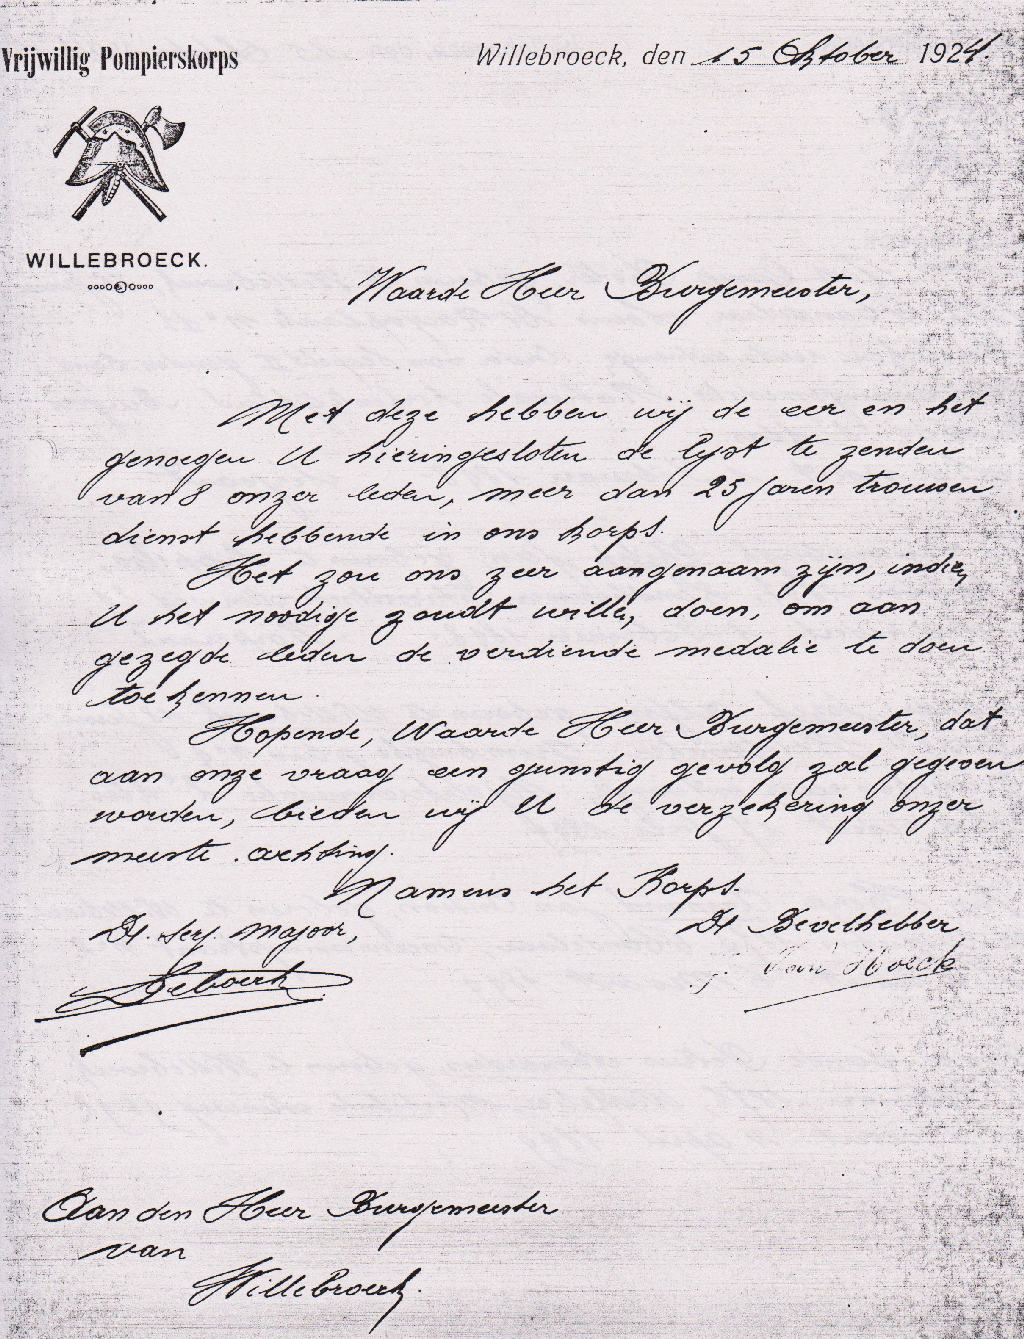 Vrijwillig Pompierskorps
WILLEBROECK.
Willebroeck, den 15 Oktober 1924.
Waarde Heer Burgemeester,
Met deze hebben wij de eer en het
genoegen U hieringesloten de lijst te zenden
van 8 onzer leden, meer dan 25 jaren trouwen
dienst hebbende in ons korps.
Het zou ons zeer aangenaam zijn, indien
U het noodige zoudt willen doen, om aan
gezegde leden de verdiende medalie te doen
toekennen.
Hopende, Waarde Heer Burgemeester, dat
aan onze vraag een gunstig gevolg zal gegeven
worden, bieden wij U de verzekering onzer
meeste achting.
Namens het Korps.
De Serj. Majoor,
De Bevelhebber
Van Hoeck
Aan den Heer Burgemeester
van
Willebroeck.